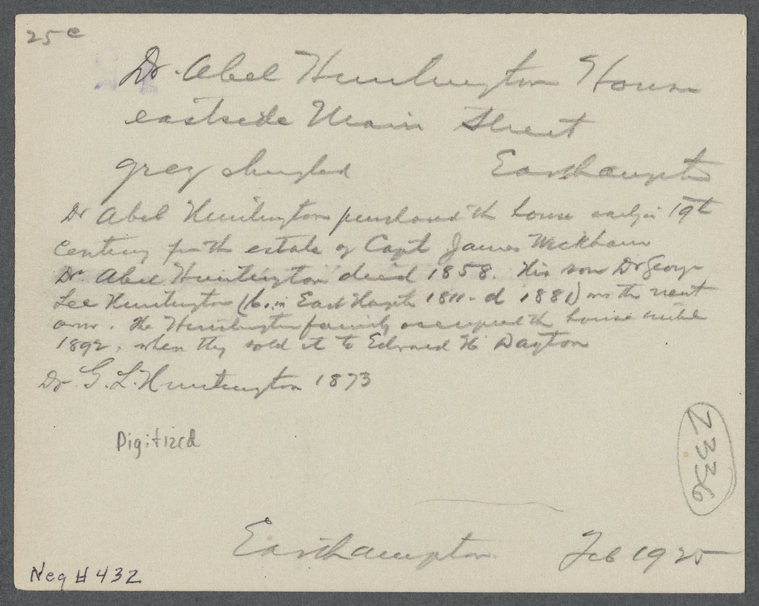 25c
Dr. Abel Huntington House
eastside Main Street
grey shingled Easthampton
Dr Abel Huntington purchased the house early in 19th
Century from the estate of Capt James Wickham
Dr Abel Huntington died 1858. His son Dr George
Lee Huntington (b. in East Hampton 1811 - d 1881) was the next
owner. The Huntington family occupied the house until
1892, when they sold it to Edward H Dayton
Dr G. L. Huntington 1873
Digitized
2336
Easthampton. Feb 1925
Neg # 432